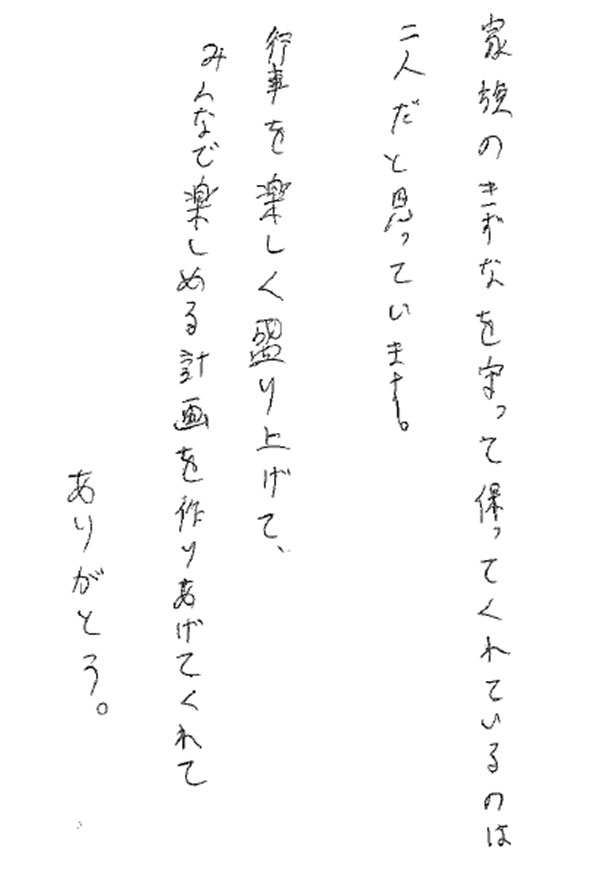 家族のきずなを守って保ってくれているのは
二人だと思っています。
行事を楽しく盛り上げて、
みんなで楽しめる計画を作りあげてくれて
ありがとう。